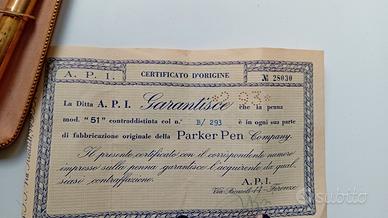 A. P. I. CERTIFICATO D'ORIGINE № 28030
La Ditta A. P. I. Garantisce che la penna
mod. "51" contraddistinta col n. B/ 293 è in ogni sua parte
di fabbricazione originale della Parker Pen Company.
Il presente certificato con il corrispondente numero
impresso sulla penna garantisce l'acquirente da qual-
siasi contraffazione.
A. P. I.
Firenze
subito